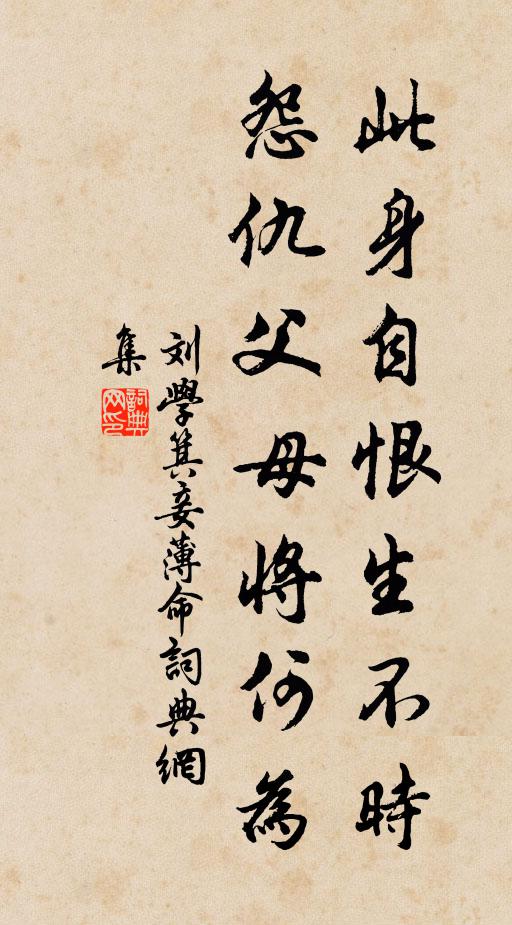 此身自恨生不時
怨仇父母將何為
刘學箕妾薄命詞典網
集
詞典
网印